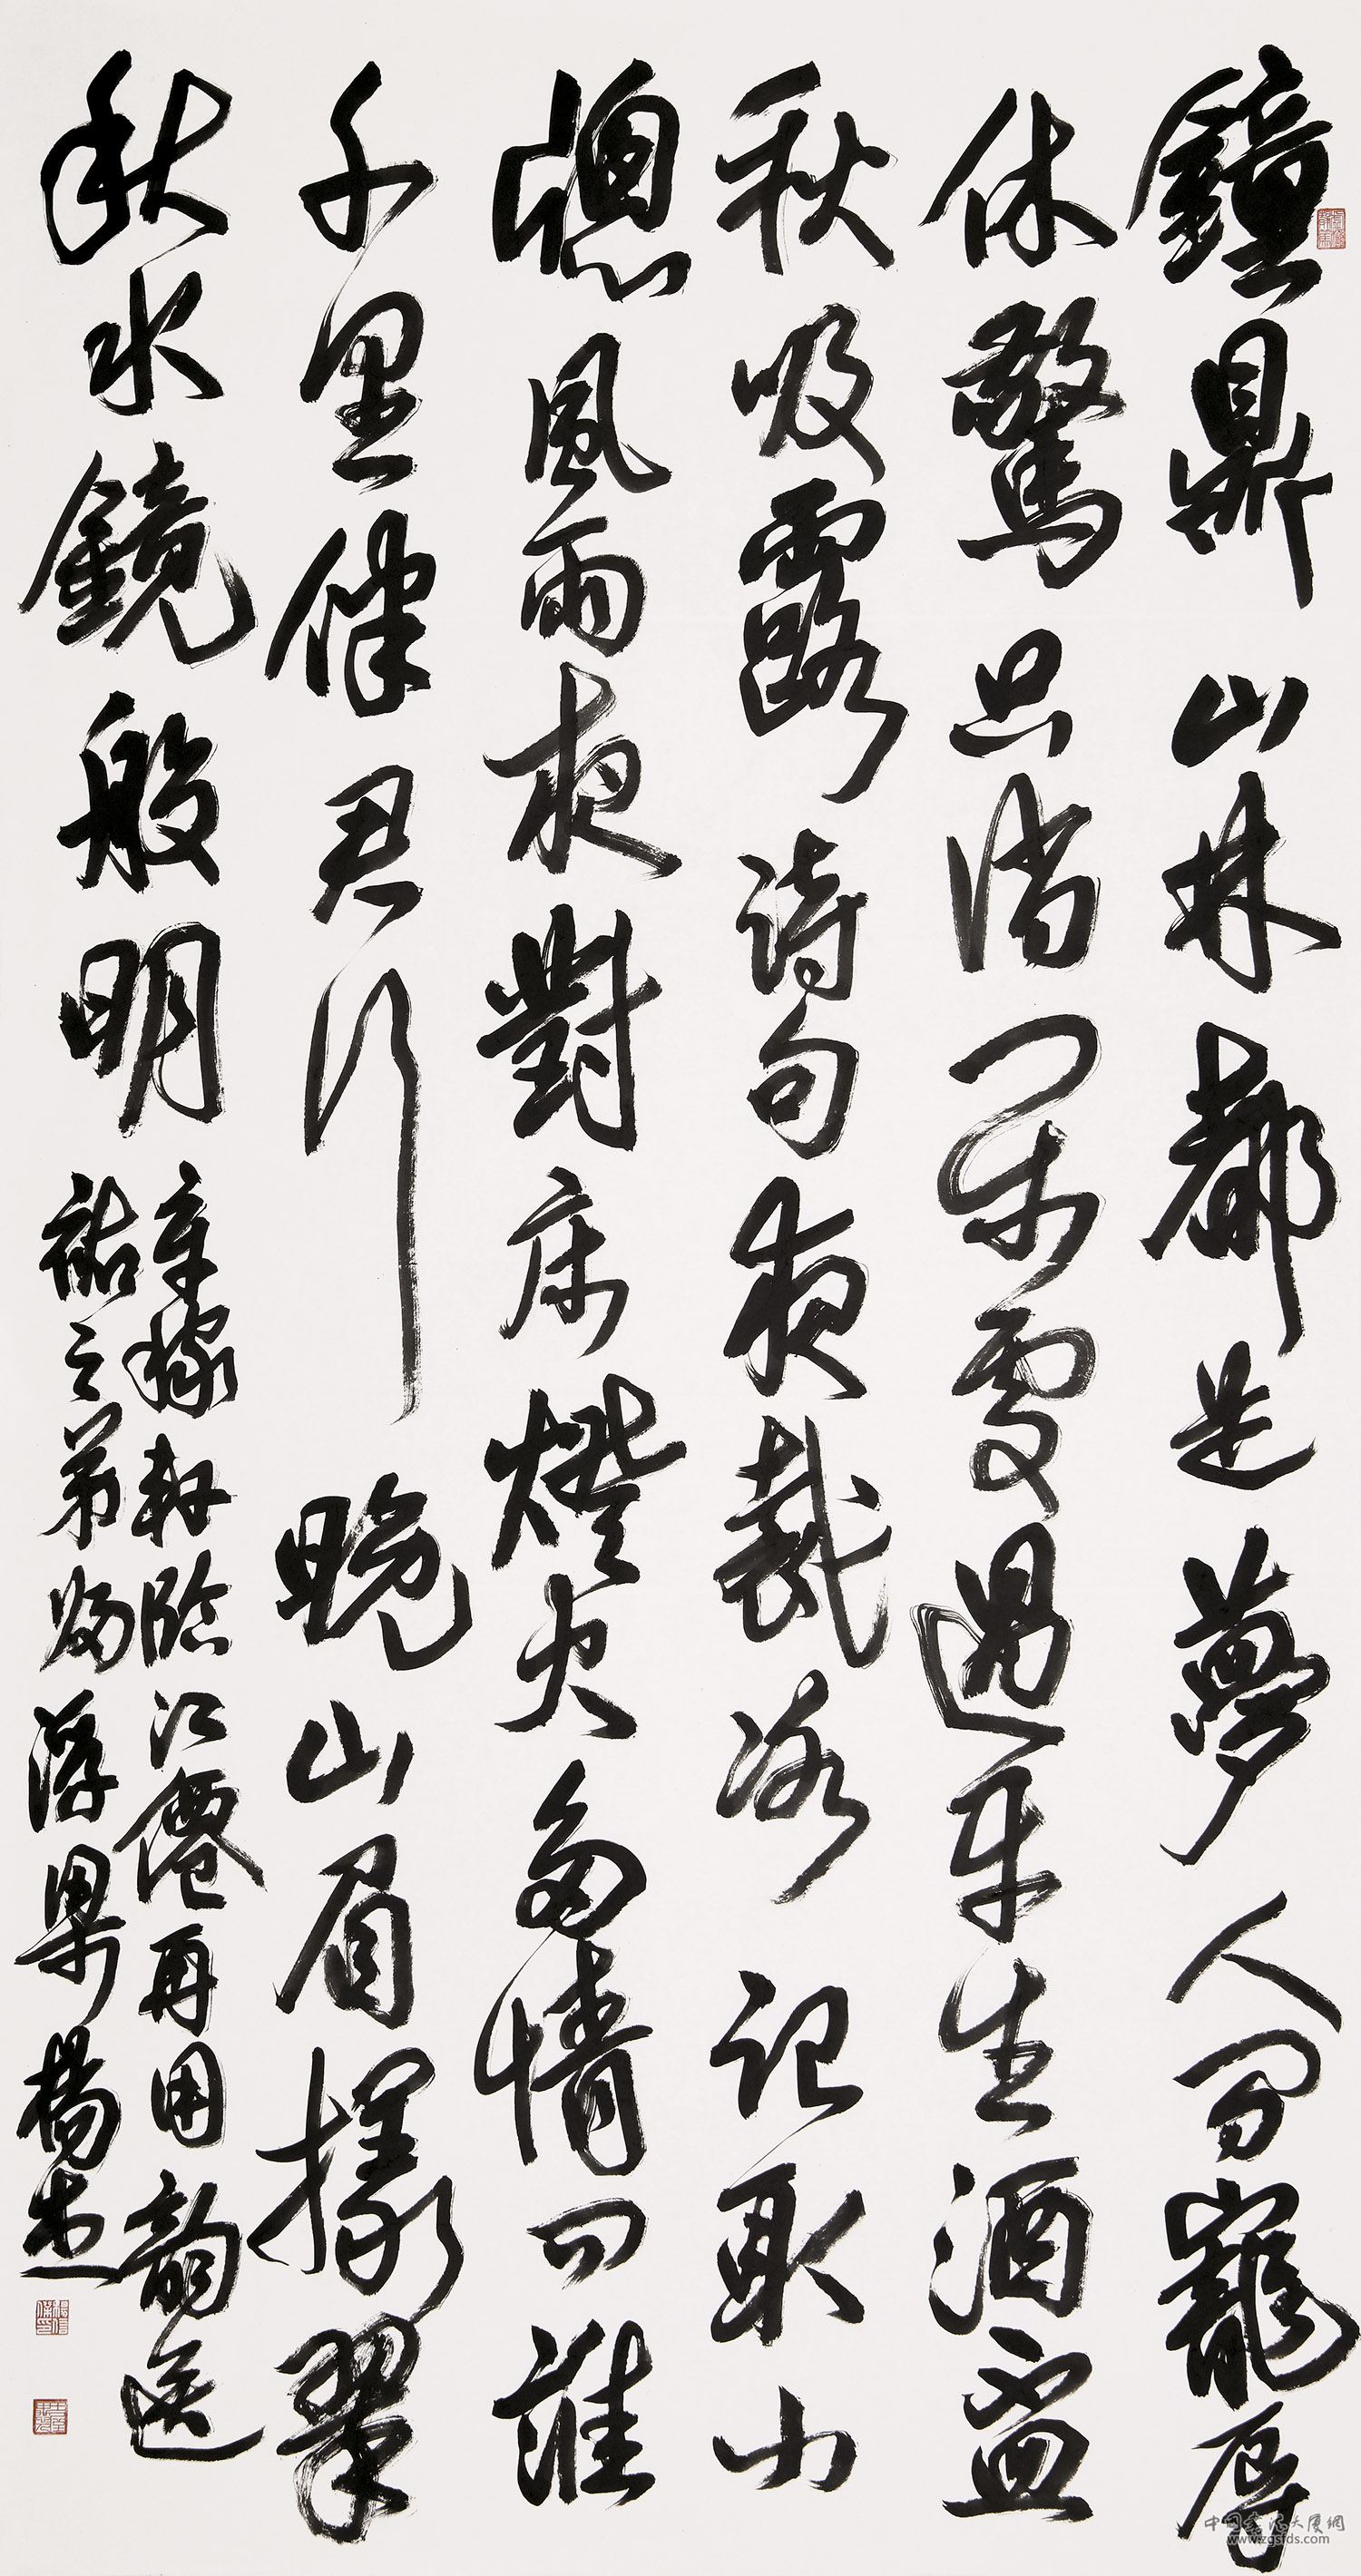 鐘鼎山林都是夢人間寵辱
休驚只消閑處過平生酒盃
秋吸露詩句夜裁冰記取小
牕風雨夜對床燈火多情問誰
千里伴君行晚山眉樣翠
秋水鏡般明
辛稼軒臨江僊再用韻送
祐之弟歸浮梁楊
中國書法大廈網
www.zgsfds.com